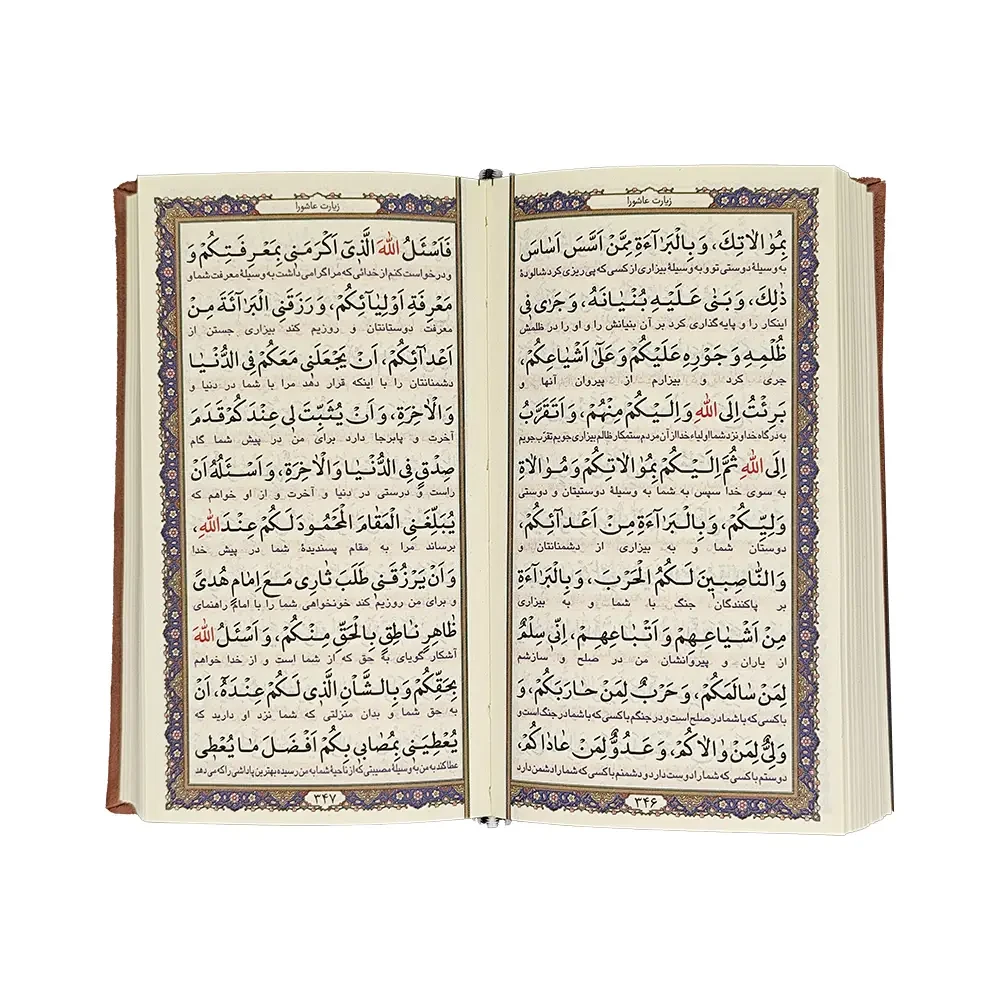 زیارت عاشورا
بِمُوالاتِكَ، وَ بِالْبَرآءَةِ مِمَّنْ اَسَّسَ اَساسَ
به وسیلهٔ دوستی تو و به وسیلهٔ بیزاری از کسی که پی ریزی کرد شالودهٔ
ذٰلِكَ، وَ بَنٰی عَلَیْهِ بُنْیٰانَهُ، وَ جَرٰی فی
اینکار را و پایه‌گذاری کرد بر آن بنیانش را و او را در ظلمش
ظُلْمِهِ وَ جَوْرِهِ عَلَیْكُمْ وَ عَلیٰ اَشْیٰاعِكُمْ،
جری کرد و بیزارم از پیروان آنها و
بَرِئْتُ اِلَی اللهِ وَ اِلَیْكُمْ مِنْهُمْ، وَ اَتَقَرَّبُ
به درگاه خدا و نزد شما اولیاء خدا از آن مردم ستمکار ظالم بیزاری جویم تقرّب جویم
اِلَی اللهِ ثُمَّ اِلَیْكُمْ بِمُوٰالاتِكُمْ وَ مُوٰالاةِ
به سوی خدا سپس به شما به وسیلهٔ دوستیتان و دوستی
وَلِیِّكُمْ، وَ بِالْبَرٰآءَةِ مِنْ اَعْدٰآئِكُمْ،
دوستان شما و به بیزاری از دشمنانتان و
وَ النّٰاصِبینَ لَكُمُ الْحَرْبَ، وَ بِالْبَرٰآءَةِ
بر پاکنندگان جنگ با شما و به بیزاری
مِنْ اَشْیٰاعِهِمْ وَ اَتْبٰاعِهِمْ، اِنّی سِلْمٌ
از یاران و پیروانشان من در صلح و سازشم
لِمَنْ سٰالَمَكُمْ، وَ حَرْبٌ لِمَنْ حٰارَبَكُمْ، وَ
با کسی که با شما در صلح است و در جنگم با کسی که با شما در جنگ است و
وَلِیٌّ لِمَنْ وٰالاٰكُمْ، وَ عَدُوٌّ لِمَنْ عٰادٰاكُمْ،
دوستم با کسی که شما را دوست دارد و دشمنم با کسی که شما را دشمن دارد
۳۴۶
زیارت عاشورا
فَاَسْئَلُ اللهَ الَّذی اَكْرَمَنی بِمَعْرِفَتِكُمْ وَ
و درخواست کنم از خدائی که مرا گرامی داشت به وسیلهٔ معرفت شما و
مَعْرِفَةِ اَوْلِیٰآئِكُمْ، وَ رَزَقَنِی الْبَرٰآئَةَ مِنْ
معرفت دوستانتان و روزیم کند بیزاری جستن از
اَعْدٰآئِكُمْ، اَنْ یَجْعَلَنی مَعَكُمْ فِی الدُّنْیٰا
دشمنانتان را با اینکه قرار دهد مرا با شما در دنیا و
وَ الْاٰخِرَةِ، وَ اَنْ یُثَبِّتَ لی عِنْدَكُمْ قَدَمَ
آخرت و پابرجا دارد برای من در پیش شما گام
صِدْقٍ فِی الدُّنْیٰا وَ الْاٰخِرَةِ، وَ اَسْئَلُهُ اَنْ
راست و درستی در دنیا و آخرت و از او خواهم که
یُبَلِّغَنِی الْمَقٰامَ الْمَحْمُودَ لَكُمْ عِنْدَ اللهِ،
برساند مرا به مقام پسندیدهٔ شما در پیش خدا
وَ اَنْ یَرْزُقَنی طَلَبَ ثٰاری مَعَ اِمٰامٍ هُدیً
و برای من روزیم کند خونخواهی شما را با امام راهنمای
ظٰاهِرٍ نٰاطِقٍ بِالْحَقِّ مِنْكُمْ، وَ اَسْئَلُ اللهَ
آشکار گویای به حق که از شما است و از خدا خواهم
بِحَقِّكُمْ وَ بِالشَّاْنِ الَّذی لَكُمْ عِنْدَهُ، اَنْ
به حق شما و بدان منزلتی که شما نزد او دارید که
یُعْطِیَنی بِمُصٰابی بِكُمْ اَفْضَلَ مٰا یُعْطی
عطا کند به من به وسیلهٔ مصیبتی که از ناحیهٔ شما به من رسیده بهترین پاداشی را که می دهد
۳۴۷